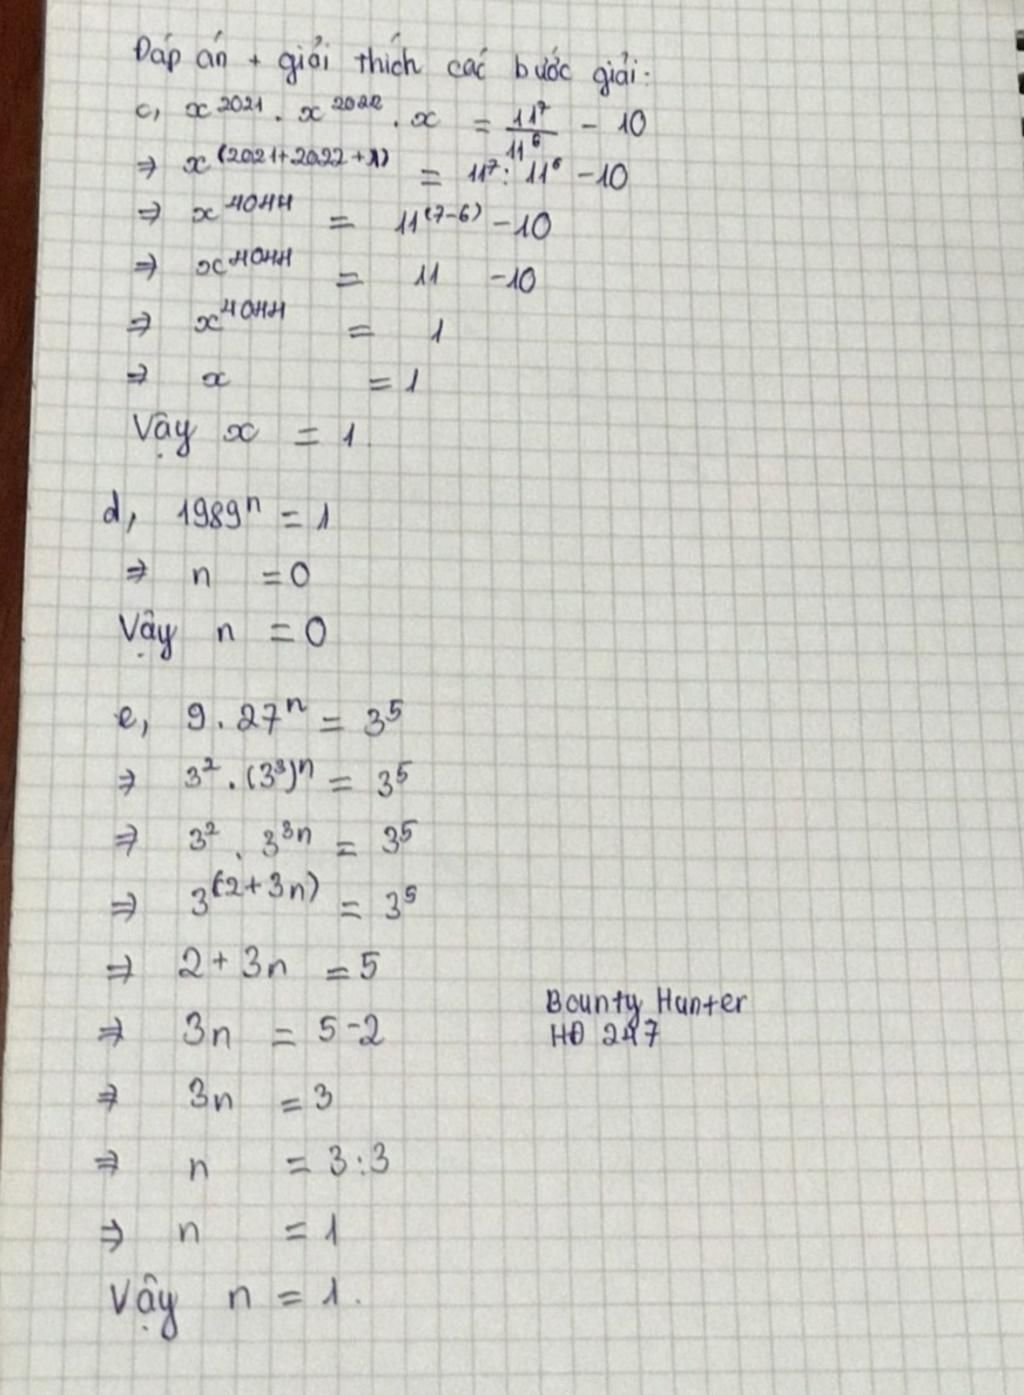 Đáp án + giải thích các bước giải:
c, x^2021 . x^2022 . x = 11^7/11^6 - 10
⇒ x^(2021+2022+1) = 11^7 : 11^6 - 10
⇒ x^4044 = 11^(7-6) - 10
⇒ x^4044 = 11 - 10
⇒ x^4044 = 1
⇒ x = 1
Vậy x = 1.
d, 1989^n = 1
⇒ n = 0
Vậy n = 0
e, 9 . 27^n = 3^5
⇒ 3^2 . (3^3)^n = 3^5
⇒ 3^2 . 3^3n = 3^5
⇒ 3^(2+3n) = 3^5
⇒ 2 + 3n = 5
⇒ 3n = 5 - 2
⇒ 3n = 3
⇒ n = 3 : 3
⇒ n = 1
Vậy n = 1.
Bounty Hunter
HĐ 247